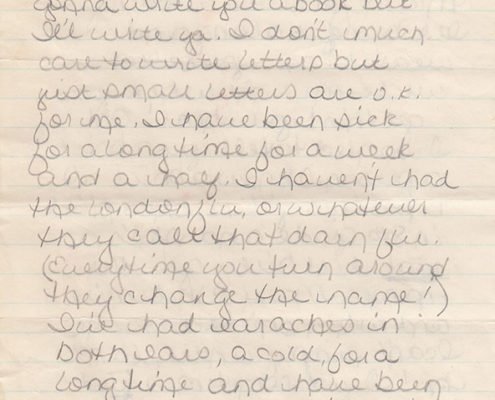 gonna write you a book but
I'll write ya. I don't much
care to write letters but
just small letters are o.k.
for me. I have been sick
for a long time for a week
and a half. I haven't had
the london flu, or whatever
they call that darn flu.
(Everytime you turn around
they change the name!)
I've had earaches in
both ears, a cold, for a
long time and have been